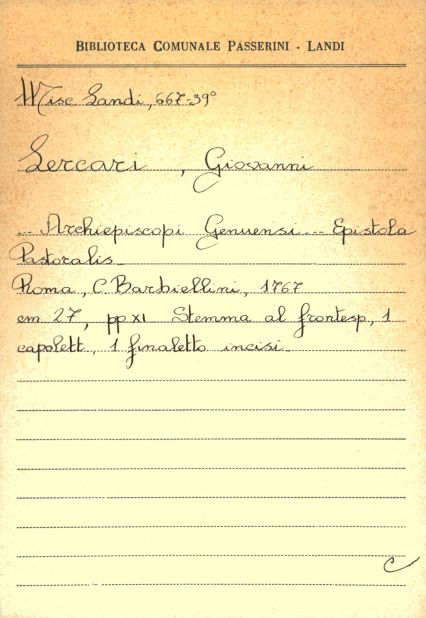 BIBLIOTECA COMUNALE PASSERINI - LANDI
Misc Landi, 667-39°
Lercari , Giovanni
... Archiepiscopi Genuensi ... Epistola
Pastoralis_
Roma, C. Barbiellini, 1767
cm 27, pp XI Stemma al frontesp, 1
capolett., 1 finaletto incisi_
C